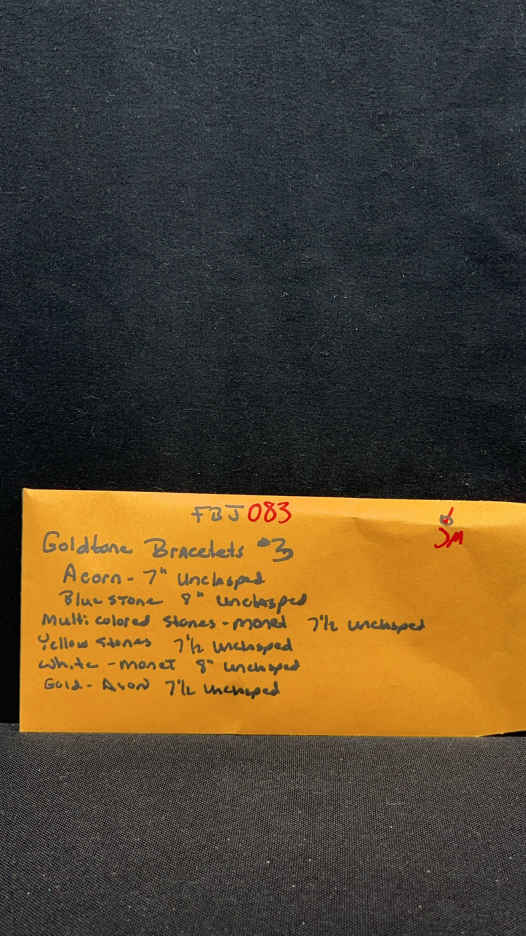 FBJ 083
JM
Goldtone Bracelets #3
Acorn - 7" Unclasped
Blue stone 8" unclasped
Multi colored stones - monet 7 1/2 unclasped
Yellow stones 7 1/2 unclasped
white - monet 8" unclasped
Gold - Avon 7 1/2 unclasped